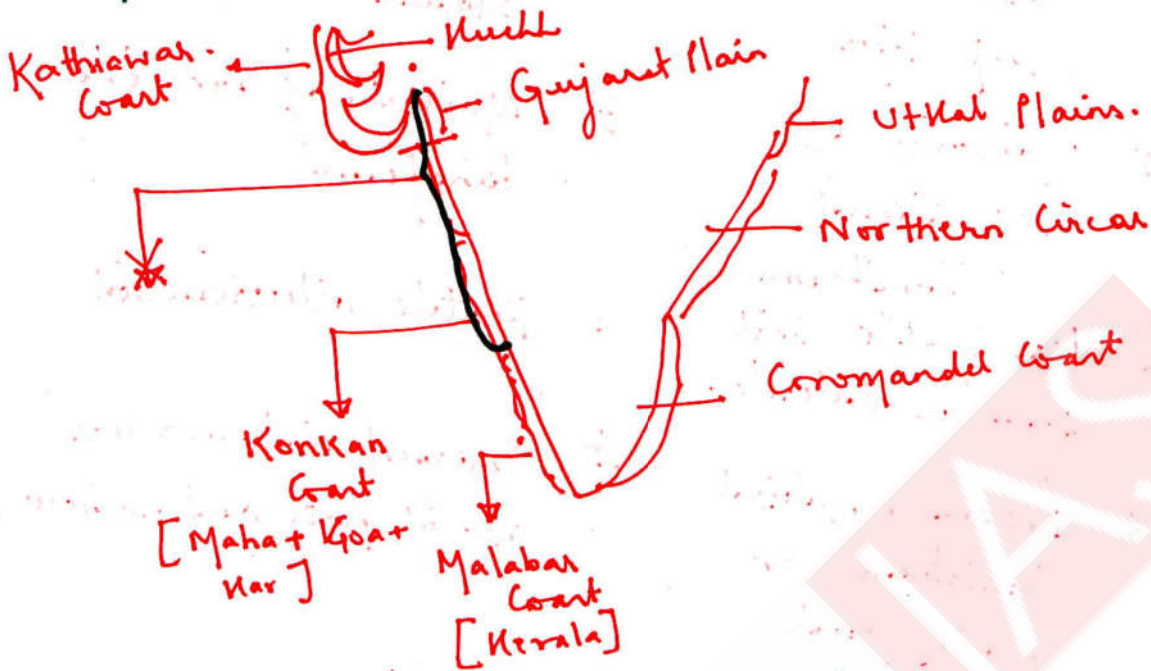 Kathiawar
Coast
Kuchh
Gujarat Plain
Utkal Plains.
Northern Circar
Coromandel Coast
Konkan
Coast
[Maha + Goa +
Kar]
Malabar
Coast
[Kerala]
IAS